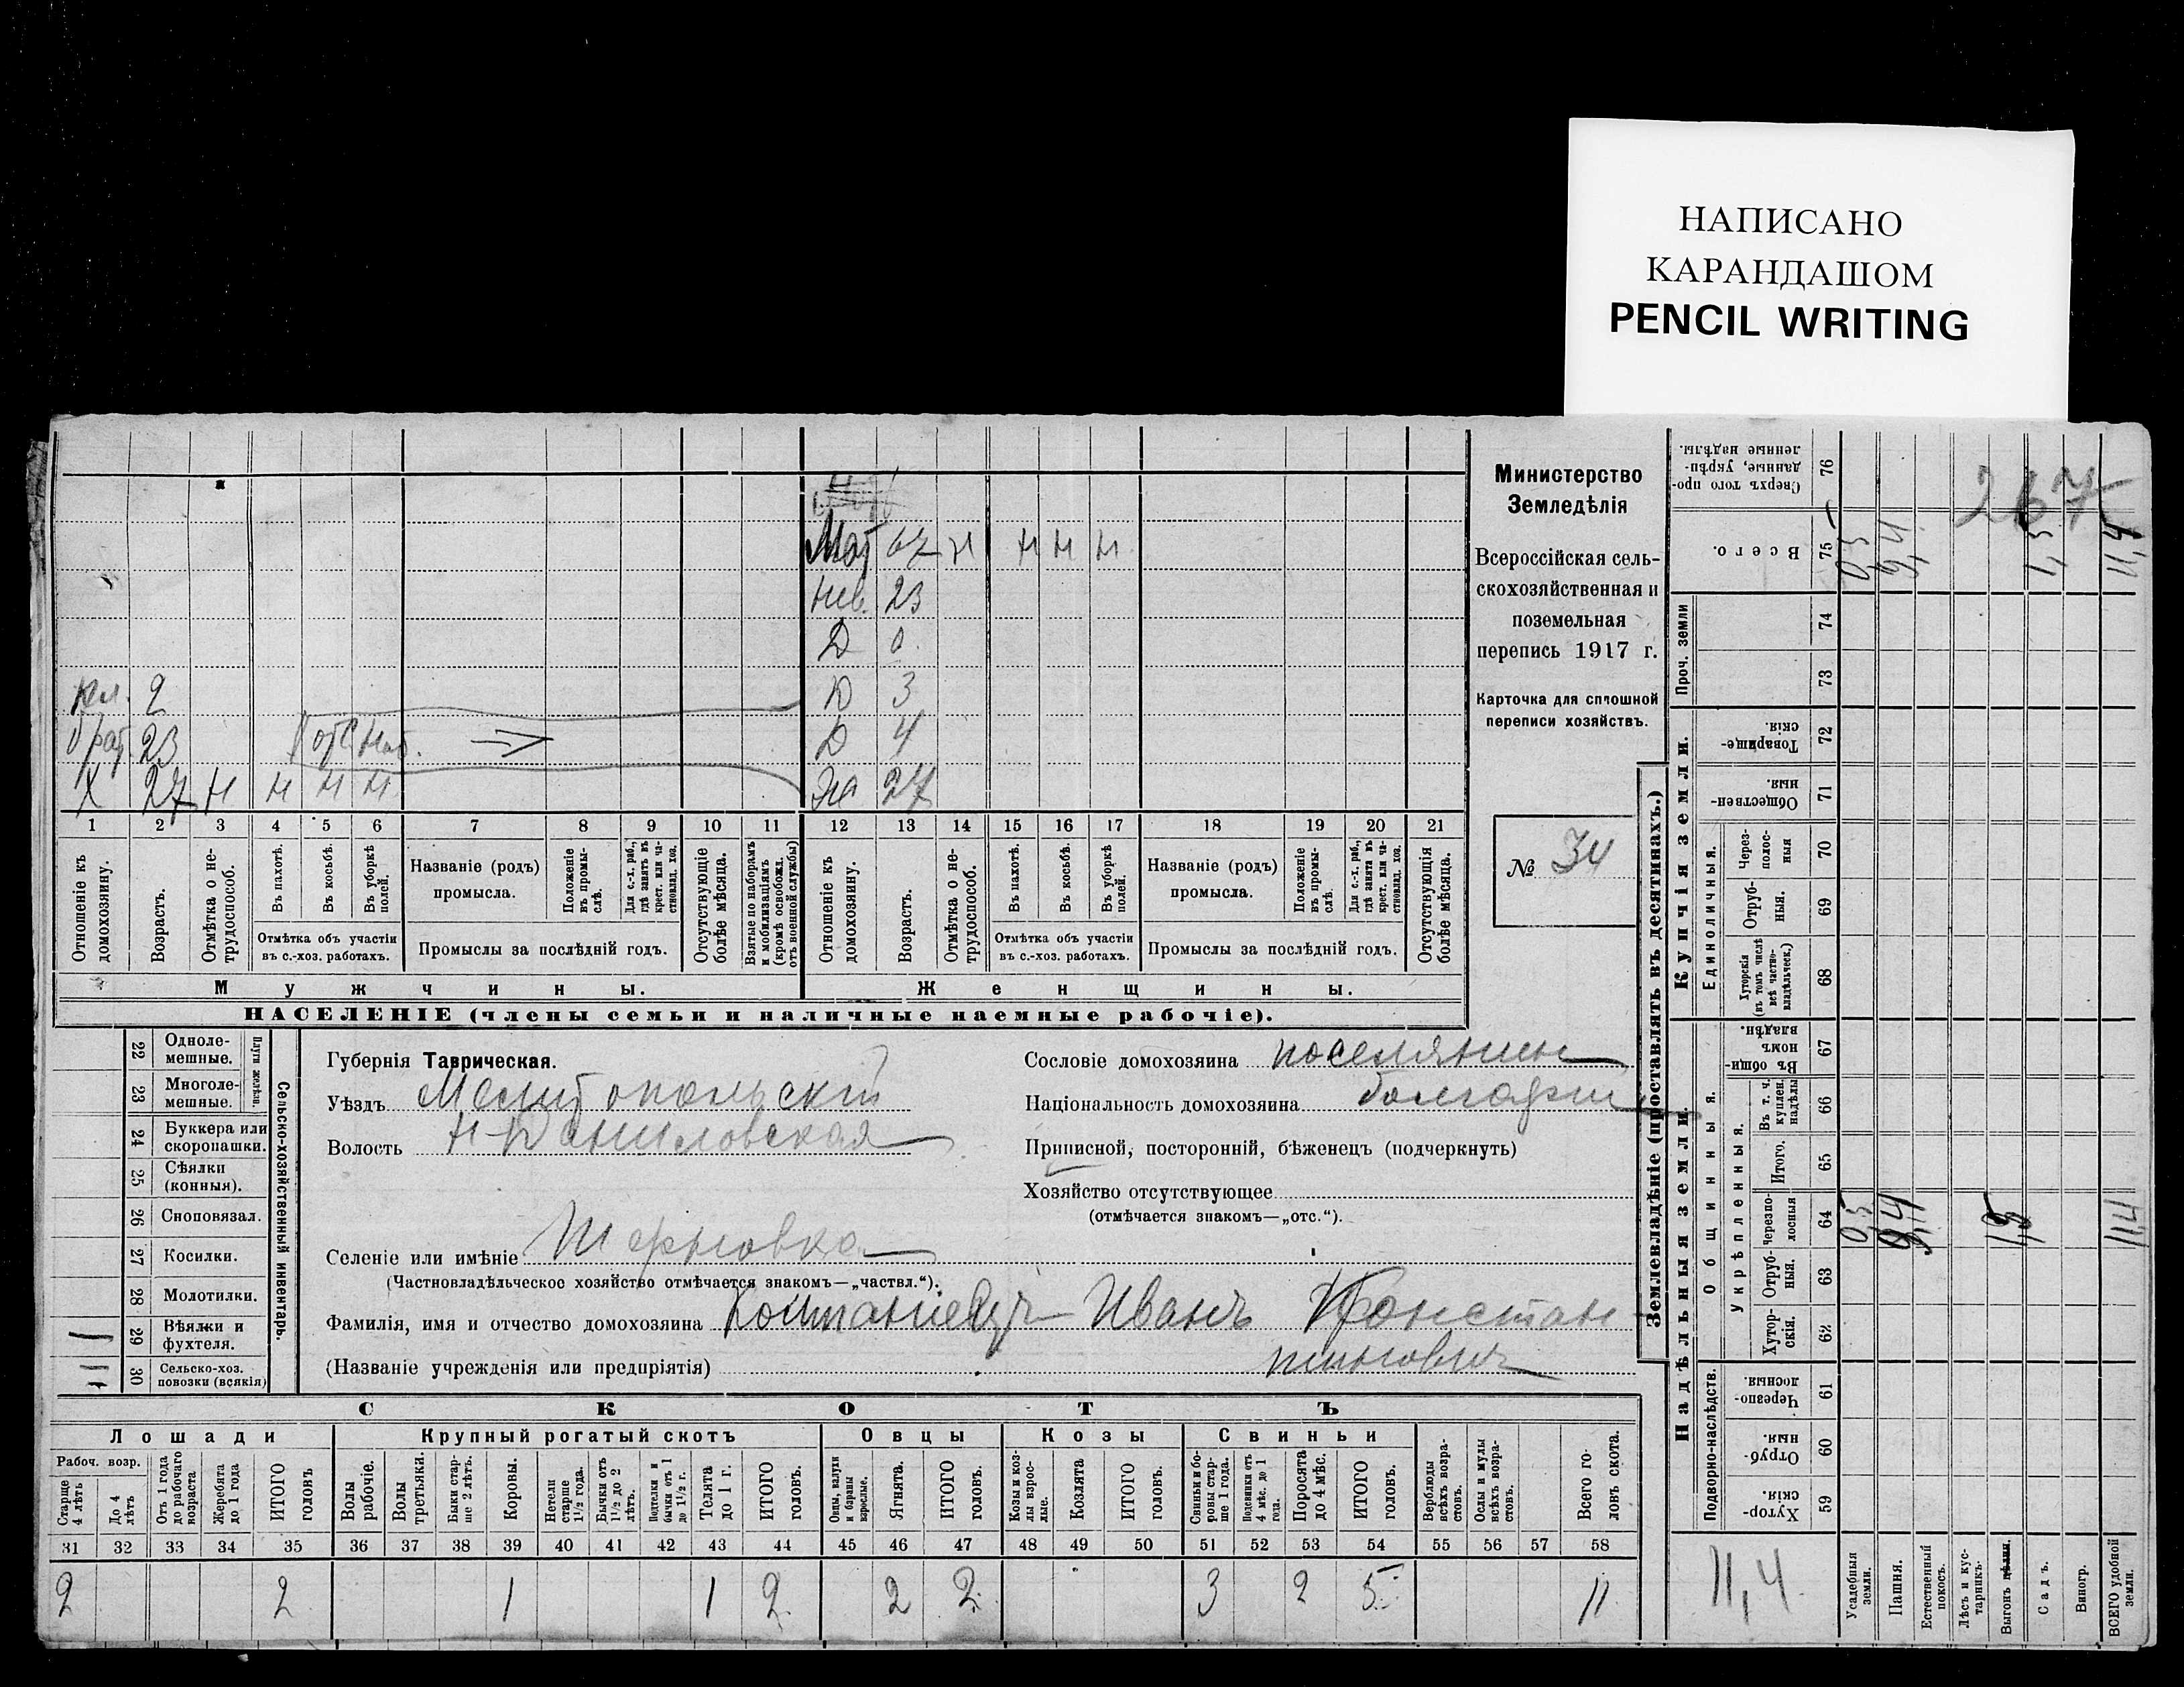 НАПИСАНО
КАРАНДАШОМ
PENCIL WRITING
Мат 67 н н н н
нев. 23
Д 0
Д 3
пл. 2
Д 4
брат. 23 отс наб.
Х 27 н н н н
Же 27
1 2 3 4 5 6 7 8 9 10 11 12 13 14 15 16 17 18 19 20 21
Отношеніе къ домохозяину.
Возрастъ.
Отмѣтка о не-трудоспособ.
Въ пахотѣ.
Въ косьбѣ.
Въ уборкѣ полей.
Отмѣтка объ участіи
въ с.-хоз. работахъ.
Названіе (родъ)
промысла.
Положеніе въ промы-слѣ.
Для с.-х. раб., гдѣ занятъ въ крест. или ча-стновлад. хоз.
Промыслы за послѣдній годъ.
Отсутствующіе болѣе мѣсяца.
Взятые по наборамъ и мобилизаціямъ (кромѣ освобожд. отъ военной службы)
Отношеніе къ домохозяину.
Возрастъ.
Отмѣтка о не-трудоспособ.
Въ пахотѣ.
Въ косьбѣ.
Въ уборкѣ полей.
Отмѣтка объ участіи
въ с.-хоз. работахъ.
Названіе (родъ)
промысла.
Положеніе въ промы-слѣ.
Для с.-х. раб., гдѣ занятъ въ крест. или ча-стновлад. хоз.
Промыслы за послѣдній годъ.
Отсутствующія болѣе мѣсяца.
Мужчины.
Женщины.
НАСЕЛЕНІЕ (члены семьи и наличные наемные рабочіе).
Министерство
Земледѣлія
Всероссійская сель-
скохозяйственная и
поземельная
перепись 1917 г.
Карточка для сплошной
переписи хозяйствъ.
№ 34
Сельско-хозяйственный инвентарь.
Плуги желѣзн.
22 Одноле-мешные.
23 Многоле-мешные.
24 Буккера или скоропашки.
25 Сѣялки (конныя).
26 Сноповязал.
27 Косилки.
28 Молотилки.
1 29 Вѣялки и фухтеля.
30 Сельско-хоз. повозки (всякія)
Губернія Таврическая.
Уѣздъ Мелитопольскій
Волость Н-Даниловская
Селеніе или имѣніе
(Частновладѣльческое хозяйство отмѣчается знакомъ—„частвл.“).
Сословіе домохозяина поселянинъ
Національность домохозяина болгаринъ
Приписной, посторонній, бѣженецъ (подчеркнуть)
Хозяйство отсутствующее
(отмѣчается знакомъ—„отс.“).
Фамилія, имя и отчество домохозяина Иванъ Констан-
(Названіе учрежденія или предпріятія) тиновичъ
СКОТЪ
Лошади
Крупный рогатый скотъ
Овцы
Козы
Свиньи
Рабоч. возр.
Старше 4 лѣтъ
До 4 лѣтъ
Отъ 1 года до рабочаго возраста
Жеребята до 1 года
ИТОГО головъ
Волы рабочіе.
Волы третьяки.
Быки стар-ше 2 лѣтъ.
Коровы.
Нетели старше 1½ года.
Бычки отъ 1½ до 2 лѣтъ.
Подтелки и бычки отъ 1 до 1½ г.
Телята до 1 г.
ИТОГО головъ.
Овцы, валухи и бараны взрослые.
Ягнята.
ИТОГО головъ.
Козы и коз-лы взрос-лые.
Козлята
ИТОГО головъ.
Свиньи и бо-ровы стар-ше 1 года.
Подсвинки отъ 4 мѣс. до 1 года.
Поросята до 4 мѣс.
ИТОГО головъ.
Верблюды всѣхъ возра-стовъ.
Ослы и мулы всѣхъ возра-стовъ.
Всего го-ловъ скота.
31 32 33 34 35 36 37 38 39 40 41 42 43 44 45 46 47 48 49 50 51 52 53 54 55 56 57 58
2 2 1 1 2 2 2 3 2 5 11
Землевладѣніе (проставлять въ десятинахъ.)
Надѣльныя земли.
Купчія земли.
Проч. земли
Общинныя.
Укрѣпленныя.
Единоличныя.
Подворно-наслѣдств.
76 Сверхъ того про-данные, укрѣп-ленные надѣлы.
75 Всего.
74
73
72 Товарище-скія.
71 Обществен-ныя.
70 Через-полос-ныя
69 Отруб-ныя.
68 Хуторскія (въ томъ числѣ всѣ частно-владѣльческ.)
67 Въ общин-номъ владѣн.
66 Въ т. ч. куплен. надѣлы
65 Итого.
64 Черезпо-лосныя
63 Отруб-ныя.
62 Хутор-скія.
61 Черезпо-лосныя.
60 Отруб-ныя.
59 Хутор-скія.
267
0,5 9,4 1,5 11,4
0,5 9,4 1,5 11,4
11,4
Усадебныя земли.
Пашня.
Естественный покосъ.
Лѣсъ и кус-тарникъ.
Выгонъ
Садъ.
Виногр.
ВСЕГО удобной земли.